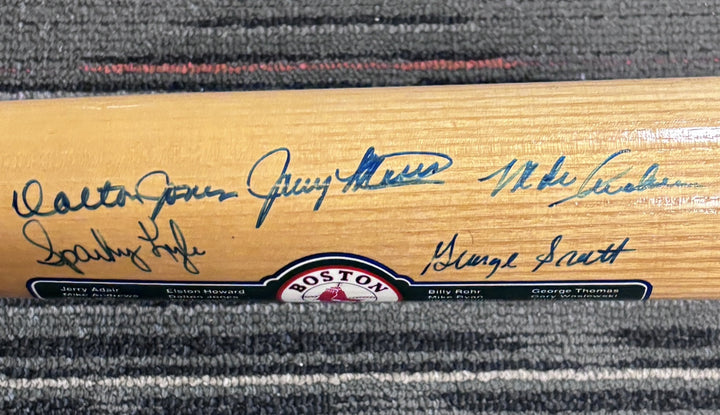 Dalton Jones Jerry Moses Mike Andrews
Sparky Lyle George Scott
BOSTON
Jerry Adair Elston Howard Billy Rohr George Thomas
Mike Andrews Dalton Jones Mike Ryan Gary Waslewski